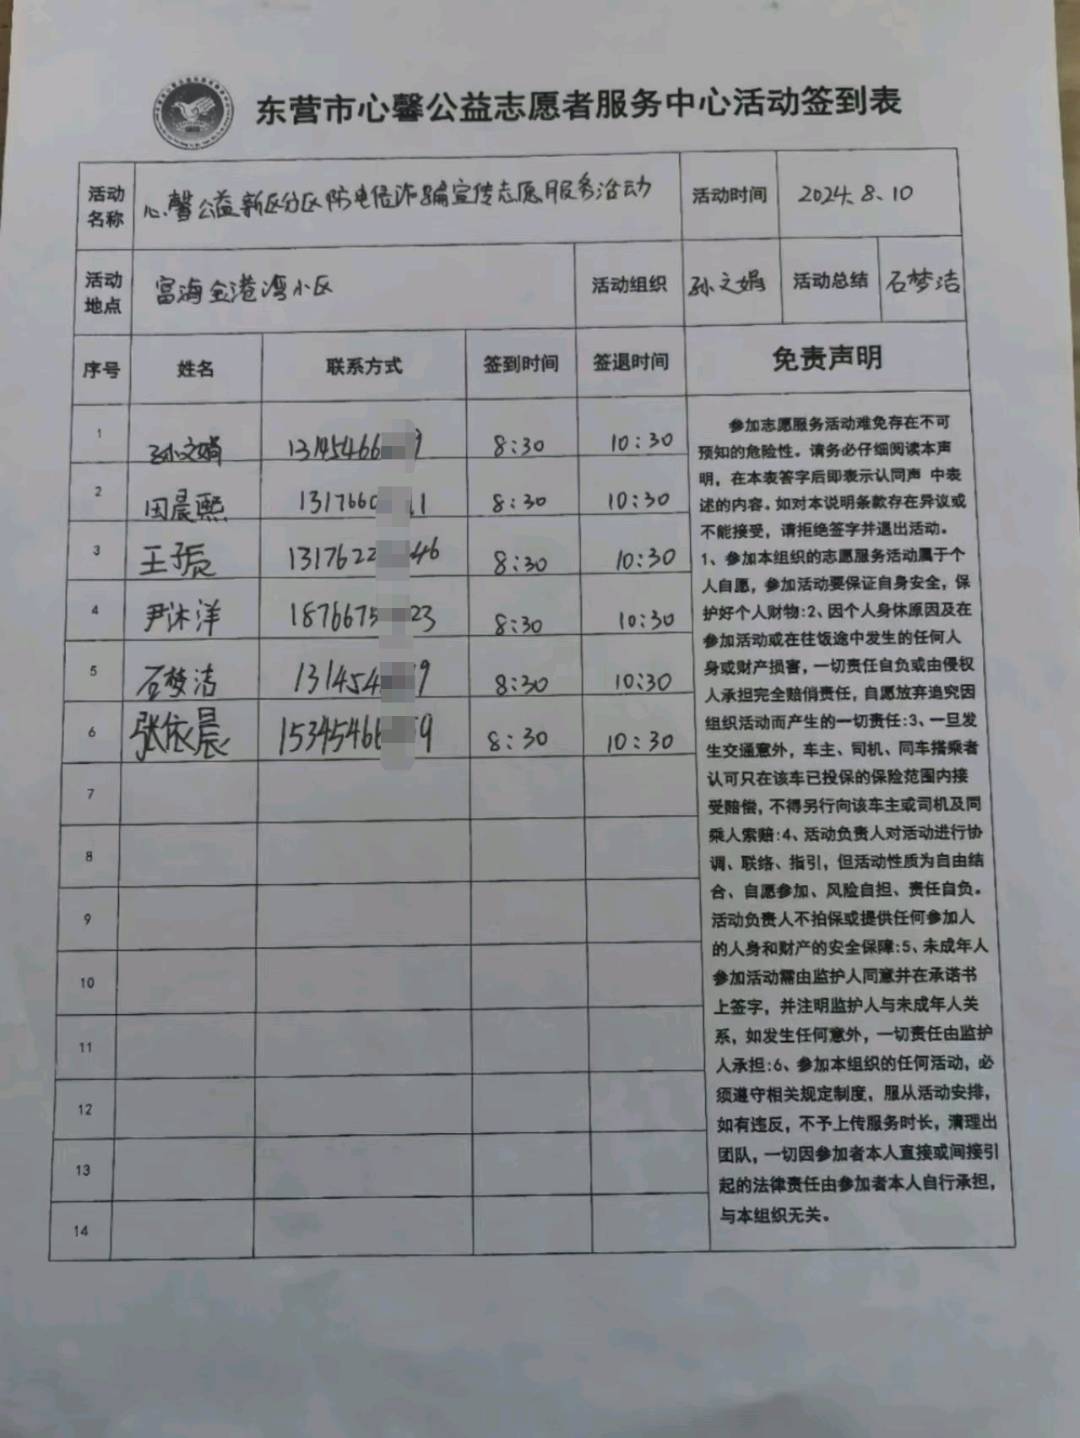 东营市心馨公益志愿者服务中心活动签到表
活动名称 心馨公益新区分区防电信诈骗宣传志愿服务活动 活动时间 2024.8.10
活动地点 富海金港湾小区 活动组织 孙文娟 活动总结 石梦洁
序号 姓名 联系方式 签到时间 签退时间 免责声明
1 孙文娟 13145466 9 8:30 10:30
2 田晨熙 1317660 1 8:30 10:30
3 王子辰 1317622 46 8:30 10:30
4 尹沐洋 1876675 23 8:30 10:30
5 石梦洁 131454 9 8:30 10:30
6 张依晨 15345466 59 8:30 10:30
7
8
9
10
11
12
13
14
参加志愿服务活动难免存在不可
预知的危险性。请务必仔细阅读本声
明，在本表答字后即表示认同声 中表
述的内容。如对本说明条款存在异议或
不能接受，请拒绝签字并退出活动。
1、参加本组织的志愿服务活动属于个
人自愿，参加活动要保证自身安全，保
护好个人财物:2、因个人身休原因及在
参加活动或在往饭途中发生的任何人
身或财产损害，一切责任自负或由侵权
人承担完全赔俏责任，自愿放弃追究因
组织活动而产生的一切责任:3、一旦发
生交通意外，车主、司机、同车搭乘者
认可只在该车已投保的保险范围内接
受赔偿，不得另行向该车主或司机及同
乘人索赔:4、活动负责人对活动进行协
调、联络、指引，但活动性质为自由结
合、自愿参加、风险自担、责任自负。
活动负责人不拍保或提供任何参加人
的人身和财产的安全保障:5、未成年人
参加活动需由监护人同意并在承诺书
上签字，并注明监护人与未成年人关
系，如发生任何意外，一切责任由监护
人承担:6、参加本组织的任何活动，必
须遵守相关规定制度，服从活动安排，
如有违反，不予上传服务时长，清理出
团队，一切因参加者本人直接或间接引
起的法律责任由参加者本人自行承担，
与本组织无关。